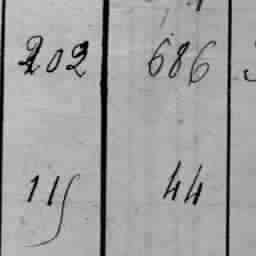 202 686
115 44